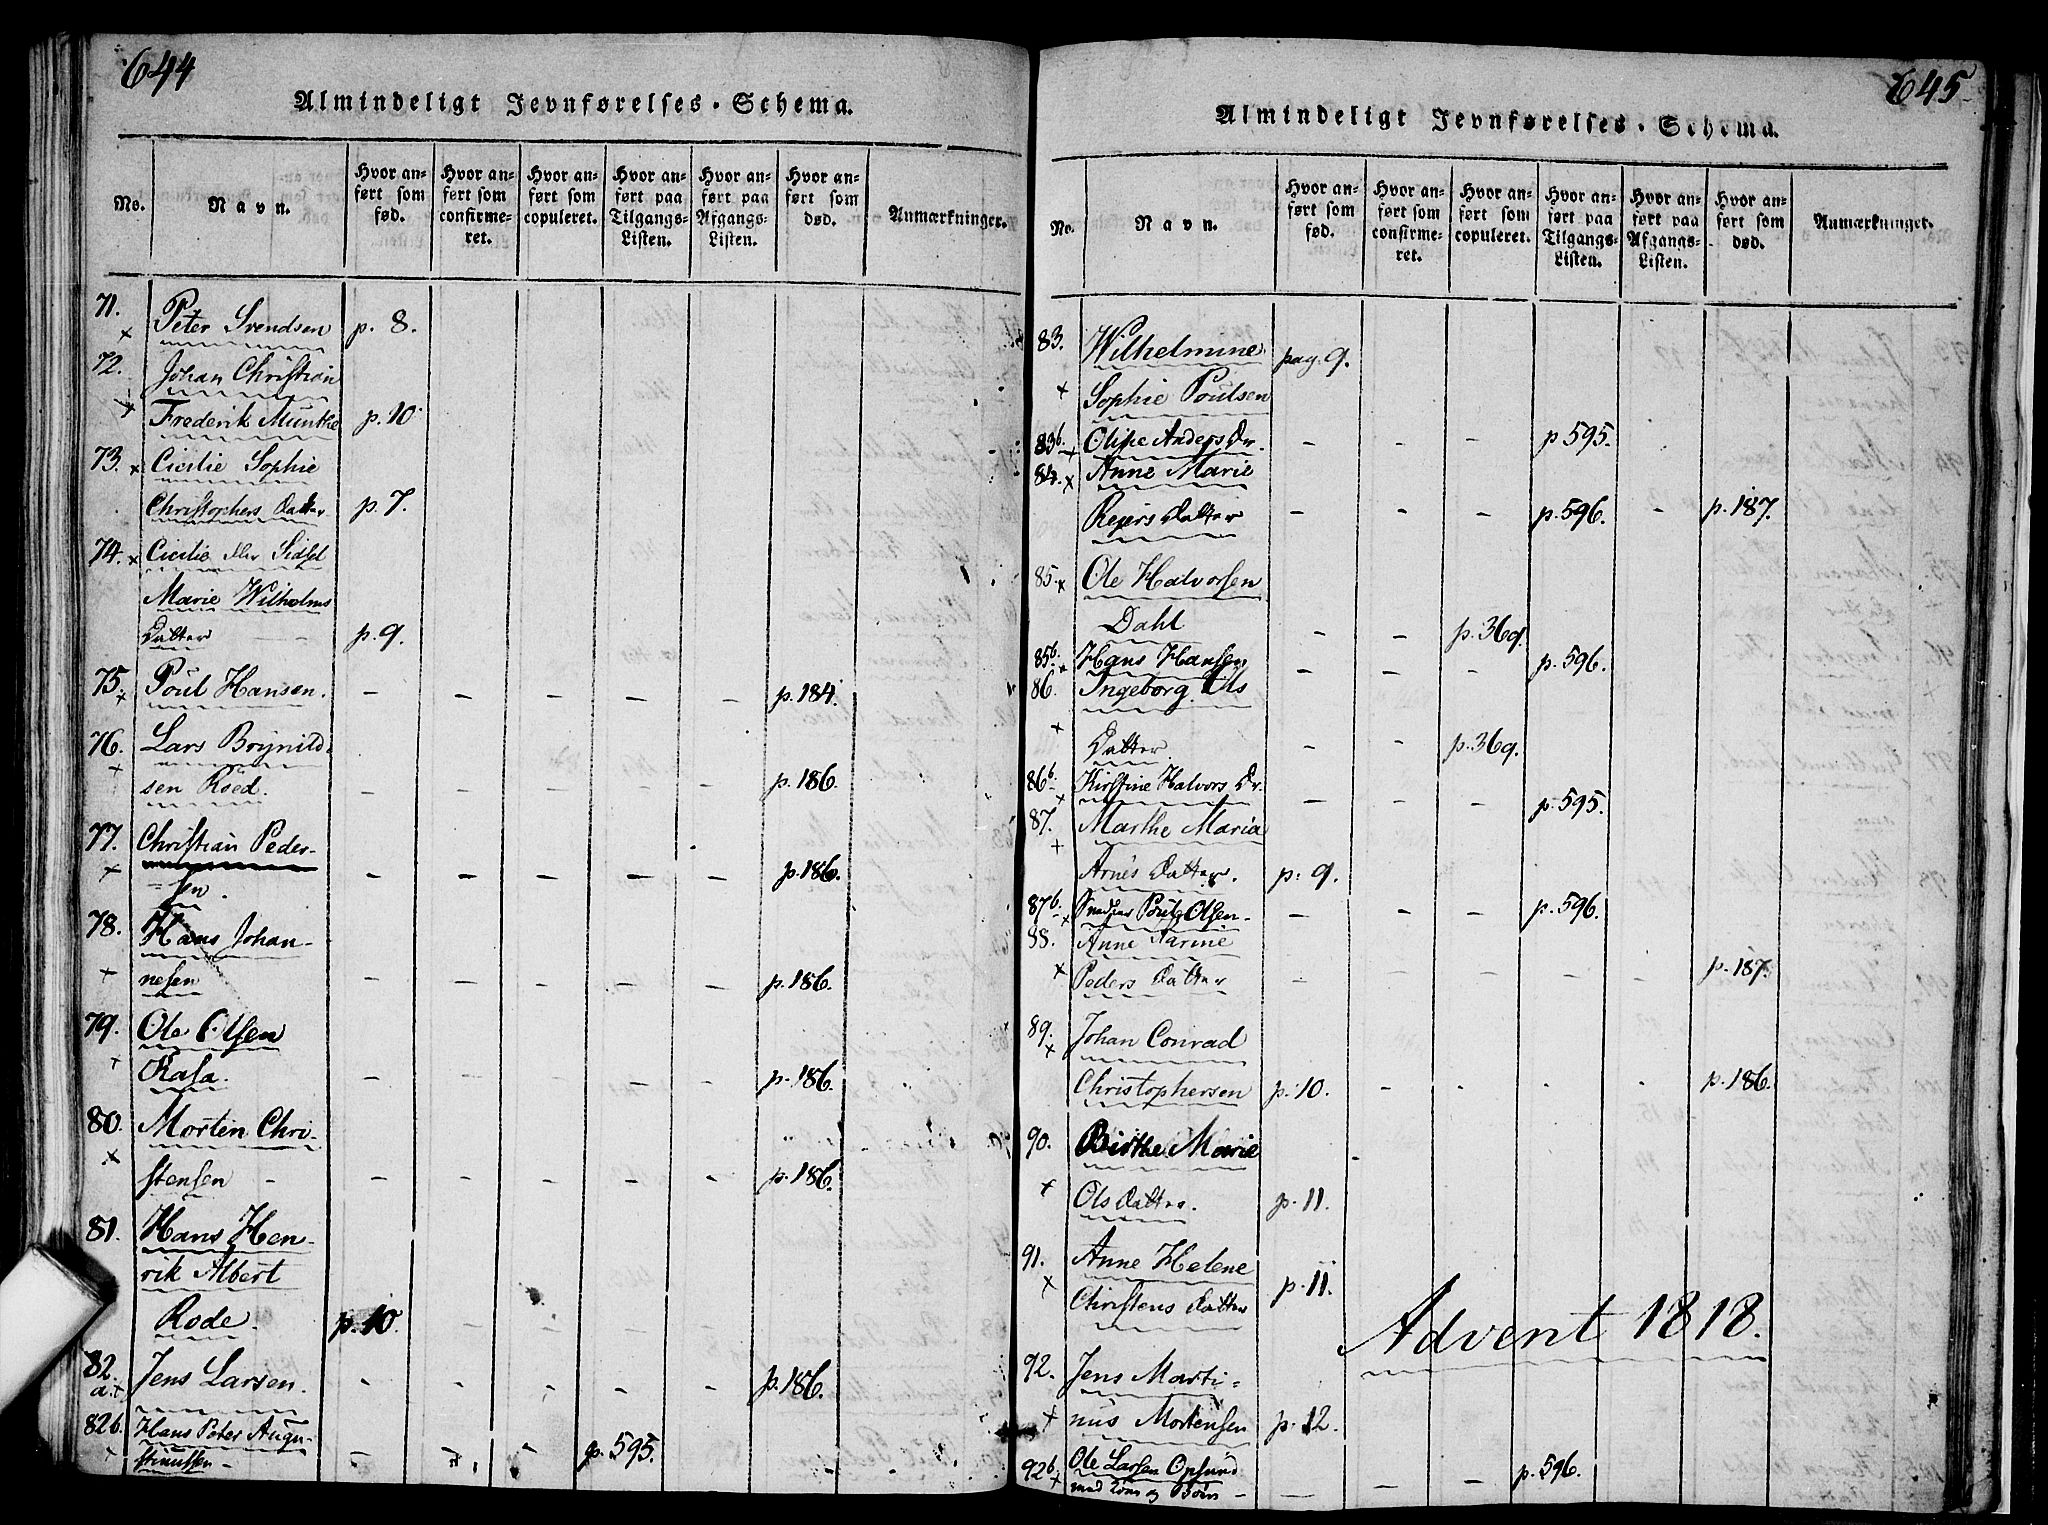 644
Almindeligt Jevnførelses-Schema.
No.
Navn.
Hvor anført som fød.
Hvor anført som confirmeret.
Hvor anført som copuleret.
Hvor anført paa Tilgangs-Listen.
Hvor anført paa Afgangs-Listen.
Hvor anført som død.
Anmærkninger.
71. Peter Svendsen p. 8.
72. Johan Christian
Frederik Munthe p. 10
73. Cicilie Sophie
Christophers Datter p. 7.
74. Cicilie eller Sidsel
Marie Wilhelms
Datter - - p. 9.
75. Poul Hansen. - - - - - p. 184.
76. Lars Brynild-
sen Röed. - - - - - p. 186.
77. Christian Peder-
sen. - - - - - p. 186.
78. Hans Johan-
nesen - - - - - p. 186.
79. Ole Olsen
Rasa. - - - - - p. 186.
80. Morten Chri-
stensen - - - - - - p. 186.
81. Hans Hen-
rik Albert
Rode. p. 10. - - - -
82. a. Jens Larsen. - - - - - p. 186.
82 b. Hans Peter Augu-
stinussen - - - - p. 595.
645
Almindeligt Jevnførelses-Schema.
No.
Navn.
Hvor anført som fød.
Hvor anført som confirmeret.
Hvor anført som copuleret.
Hvor anført paa Tilgangs-Listen.
Hvor anført paa Afgangs-Listen.
Hvor anført som død.
Anmærkninger.
83. Wilhelmine pag. 9.
Sophie Poulsen
83b. Olipe Anders Dr. - - - p 595.
84. Anne Marie
Reiers Datter - - - p. 596. - p. 187.
85. Ole Halvorsen
Dahl - - p. 369.
85b. Hans Hansen - - - p. 596.
86. Ingeborg Ols
Datter - - p. 369.
86b. Kirstine Halvors Dr. - - - p. 595.
87. Marthe Maria
Arnes Datter. p. 9.
87b. Poul Olsen - - - - p. 596.
88. Anne Karine
Peders Datter - - - - - p. 187.
89. Johan Conrad
Christophersen p. 10. - - - - p. 186.
90. Birthe Marie
Ols Datter. p. 11.
91. Anne Helene
Christens Datter p. 11.
Advent 1818.
92. Jens Marti-
nus Mortensen p. 12.
92b. Ole Larsen Opsund
med Kone og Börn - - - - p. 596.